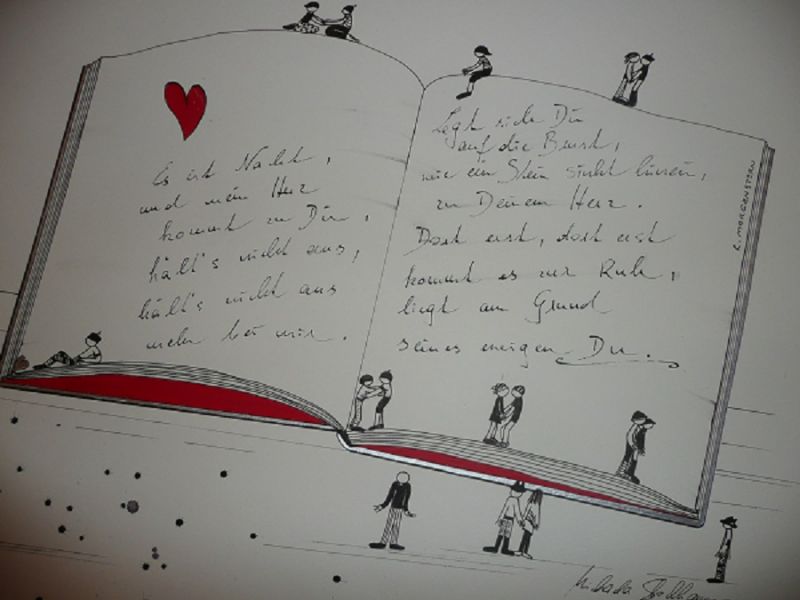 Es ist Nacht,
und mein Herz
kommt zu Dir,
hält's nicht aus,
hält's nicht aus
mehr bei mir.
Legt sich Dir
auf die Brust,
wie ein Stein sinkt hinein,
zu Deinem Herz.
Dort erst, dort erst
kommt es zur Ruh,
liegt am Grund
seines ewigen Du.
C. MORGENSTERN